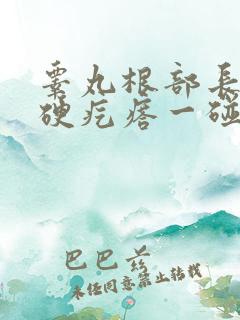 睾丸根部长
硬疙瘩一碰
巴巴羔
未经同意禁止转载